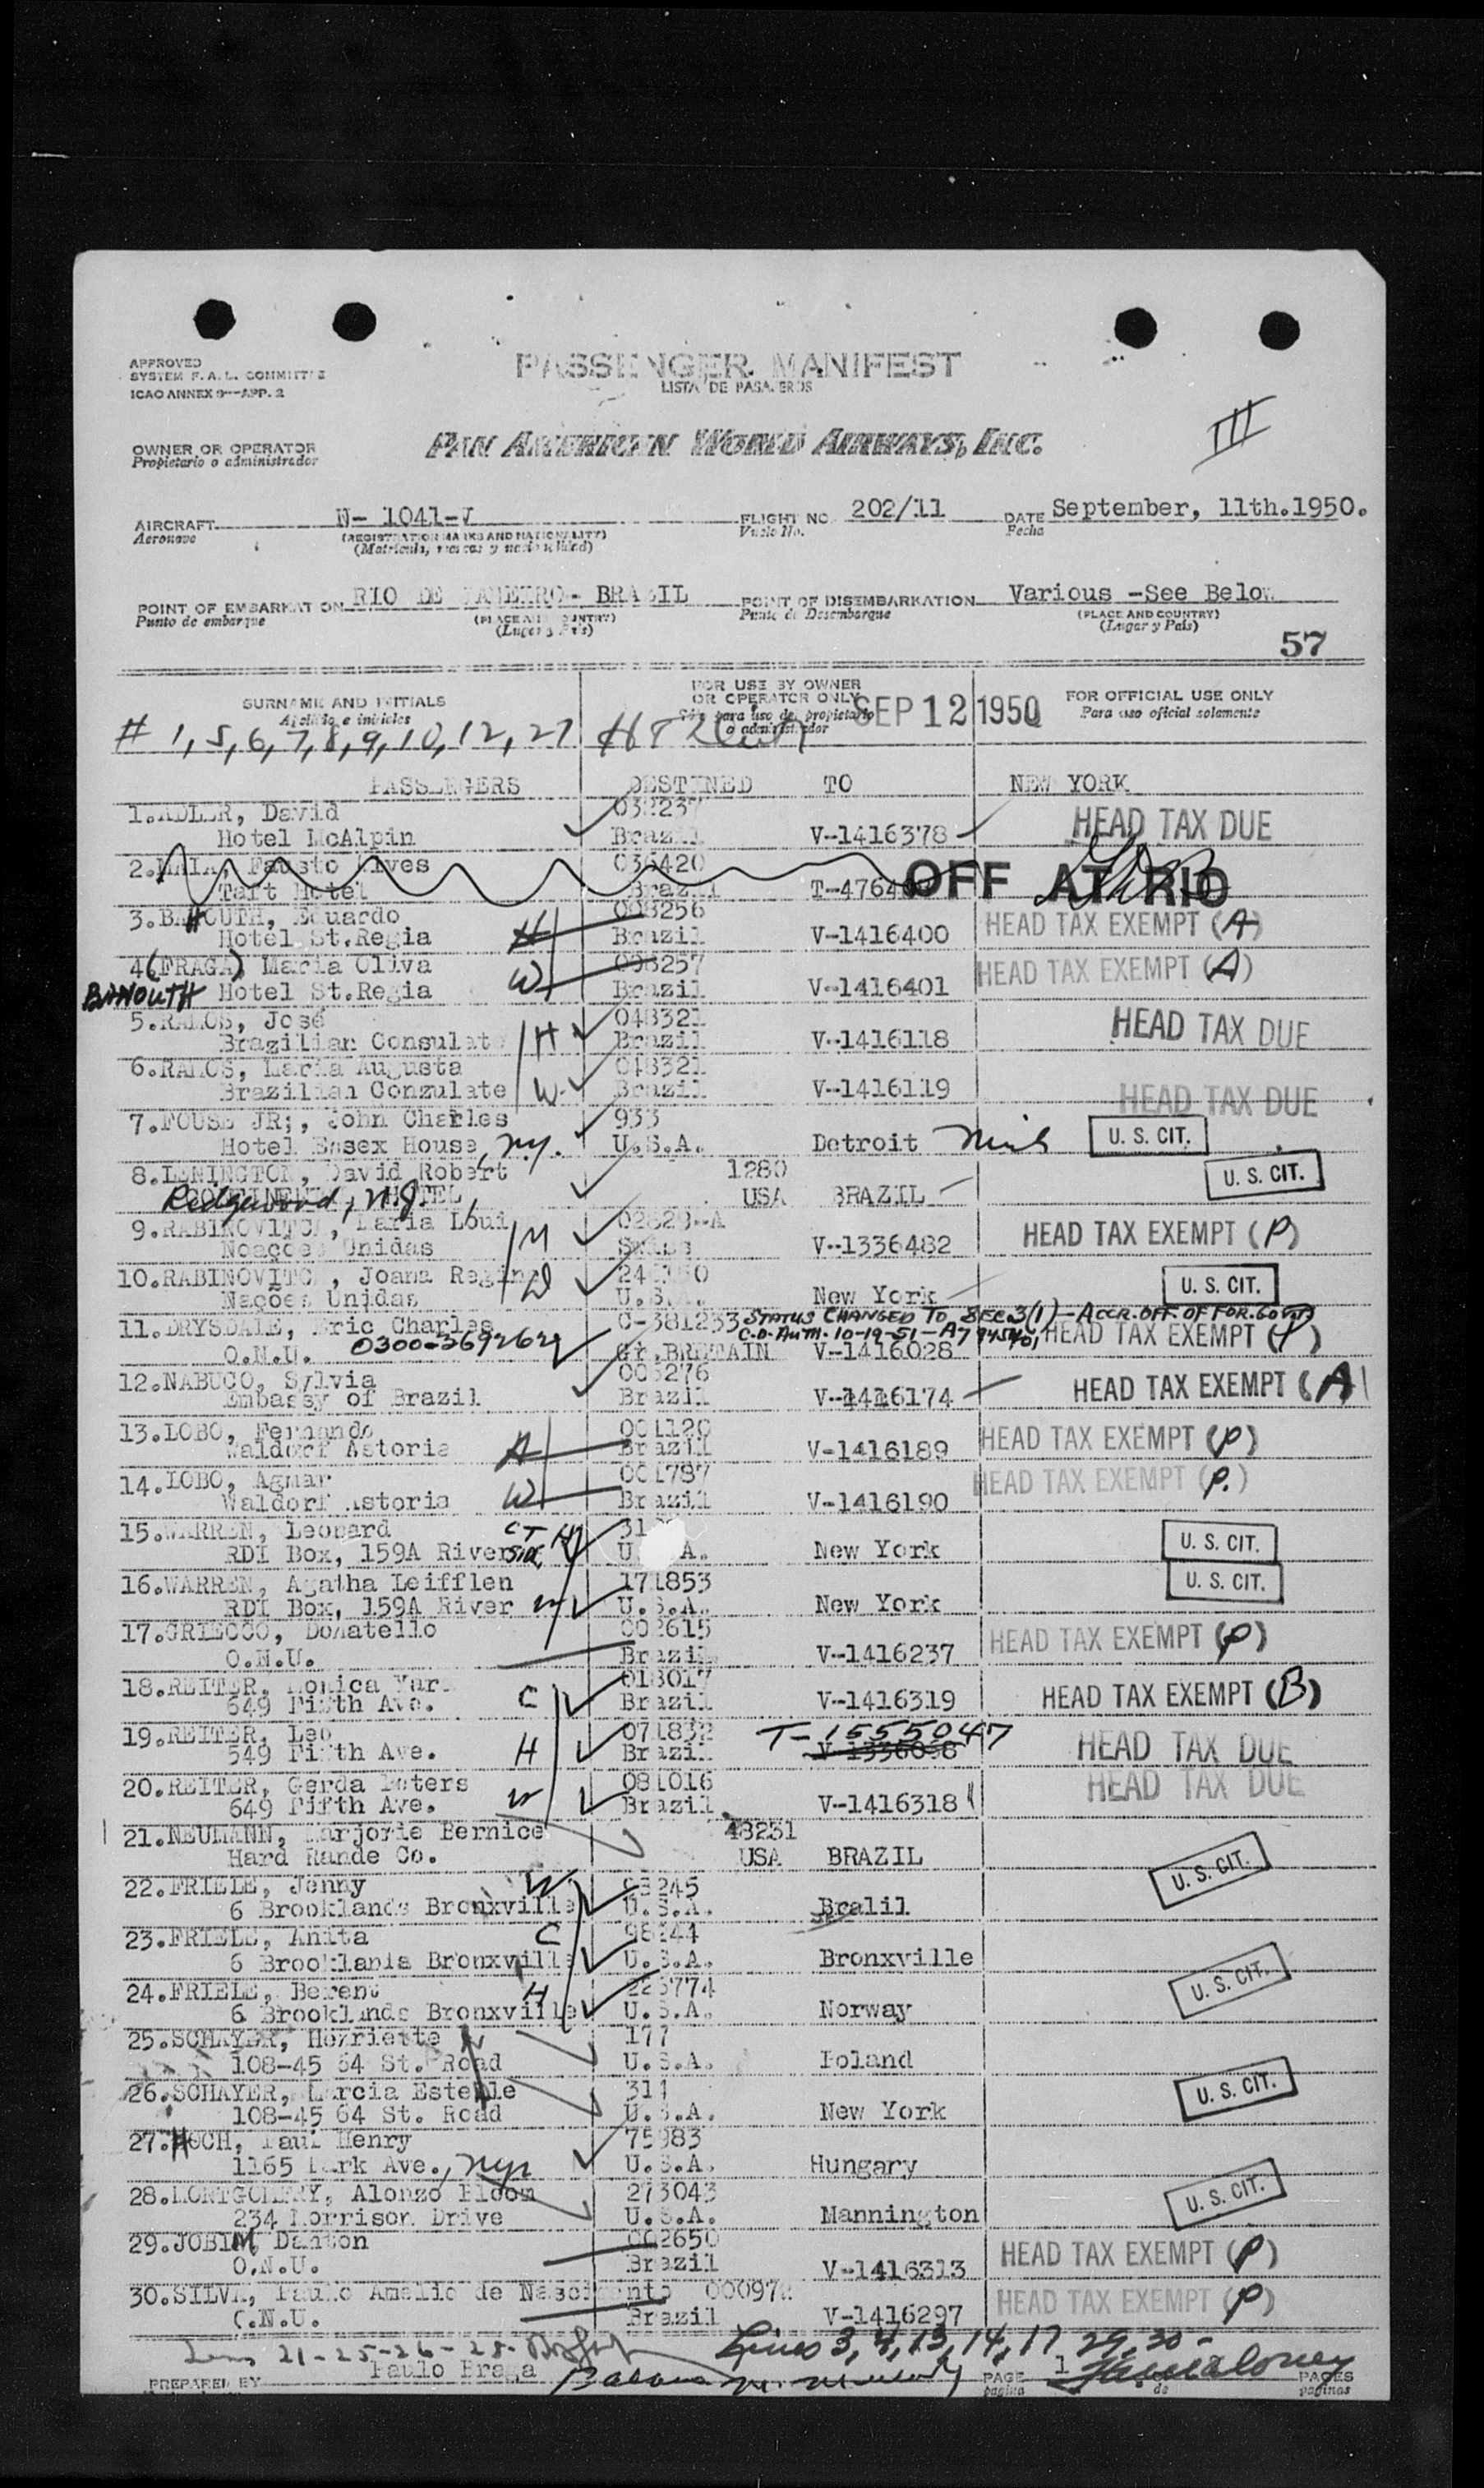 APPROVED
SYSTEM F. A. L. COMMITTEE
ICAO ANNEX 9--APP. 2
PASSENGER MANIFEST
LISTA DE PASAJEROS
III
OWNER OR OPERATOR
Propietario o administrador
PAN AMERICAN WORLD AIRWAYS, INC.
AIRCRAFT N- 1041-V FLIGHT NO. 202/11 DATE September, 11th.1950.
Aeronave (REGISTRATION MARKS AND NATIONALITY) Vuelo No. Fecha
(Matricula, marcas y nacionalidad)
POINT OF EMBARKATION RIO DE JANEIRO- BRAZIL POINT OF DISEMBARKATION Various -See Below
Punto de embarque (PLACE AND COUNTRY) Punto de Desembarque (PLACE AND COUNTRY)
(Lugar y Pais) (Lugar y Pais)
57
SURNAME AND INITIALS FOR USE BY OWNER OR OPERATOR ONLY FOR OFFICIAL USE ONLY
Apellido e iniciales Sólo para uso de propietario o administrador Para uso oficial solamente
SEP 12 1950
# 1,5,6,7,8,9,10,12,27
PASSENGERS DESTINED TO NEW YORK
1.ADLER, David 032237
Hotel McAlpin Brazil V-1416378 HEAD TAX DUE
2.MAIA, Fausto Alves 036420
Taft Hotel Brazil OFF AT RIO
3.BAHOUTH, Eduardo 008256
Hotel St.Regia H Brazil V-1416400 HEAD TAX EXEMPT (A)
4(FRAGA) Maria Oliva 008257
BAHOUTH Hotel St.Regia W Brazil V-1416401 HEAD TAX EXEMPT (A)
5.RAMOS, José 048321
Brazilian Consulate H Brazil V-1416118 HEAD TAX DUE
6.RAMOS, Maria Augusta 048321
Brazilian Conzulate W Brazil V-1416119 HEAD TAX DUE
7.FOUSE JR;, John Charles 933
Hotel Essex House, N.Y. U.S.A. Detroit Mich U. S. CIT.
8.LENINGTON, David Robert 1280
Ridgewood, N.J. HOTEL USA BRAZIL U. S. CIT.
9.RABINOVITCH, Maria Loui 02823-A
Noaçoes Unidas M V-1336482 HEAD TAX EXEMPT (P)
10.RABINOVITCH, Joana Regina
Nações Unidas D U.S.A. New York U. S. CIT.
11.DRYSDALE, Eric Charles C-381233 STATUS CHANGED TO SEC.3(1)-ACCR.OFF. OF FOR. GOVT
0300-369262 C.O. AUTH. 10-19-51-A7
O.N.U. Gt.BRETAIN V-1416028 HEAD TAX EXEMPT (P)
12.NABUCO, Sylvia 003276
Embassy of Brazil Brazil V-1416174 HEAD TAX EXEMPT (A)
13.LOBO, Fernando 001120
Waldorf Astoria H Brazil V-1416189 HEAD TAX EXEMPT (P)
14.LOBO, Agmar 001787
Waldorf Astoria W Brazil V-1416190 HEAD TAX EXEMPT (P.)
15.WARREN, Leonard
RDI Box, 159A River H U.S.A. New York U. S. CIT.
16.WARREN, Agatha Leifflen 171853
RDI Box, 159A River W U.S.A. New York U. S. CIT.
17.GRIECCO, Donatello 002615
O.N.U. Brazil V-1416237 HEAD TAX EXEMPT (P)
18.REITER, Monica 018017
649 Fifth Ave. C Brazil V-1416319 HEAD TAX EXEMPT (B)
19.REITER, Leo 071832 T-1555047
549 Fifth Ave. H Brazil HEAD TAX DUE
20.REITER, Gerda Peters 081016
649 Fifth Ave. W Brazil V-1416318 HEAD TAX DUE
21.NEUMANN, Marjorie Bernice 48231
Hard Rande Co. USA BRAZIL U. S. CIT.
22.FRIELE, Jenny W 98245
6 Brooklands Bronxville U.S.A. Bralil
23.FRIELE, Anita C 98244
6 Brooklands Bronxville U.S.A. Bronxville
24.FRIELE, Berent H 223774 U. S. CIT.
6 Brooklands Bronxville U.S.A. Norway
25.SCHAYER, Henriette 177
108-45 64 St. Road U.S.A. Poland
26.SCHAYER, Marcia Estelle 311 U. S. CIT.
108-45 64 St. Road U.S.A. New York
27.HOCH, Paul Henry 75983
1165 Park Ave., N.Y. U.S.A. Hungary
28.MONTGOMERY, Alonzo Bloom 273043 U. S. CIT.
234 Morrison Drive U.S.A. Mannington
29.JOBIM, Danton 002650
O.N.U. Brazil V-1416313 HEAD TAX EXEMPT (P)
30.SILVA, Paulo Amelio de Nascimento 00097
O.N.U. Brazil V-1416297 HEAD TAX EXEMPT (P)
Lines 21-25-26-28- Lines 3,4,13,14,17 29,30-
PREPARED BY Paulo Braga PAGE 1 PAGES
pagina de paginas